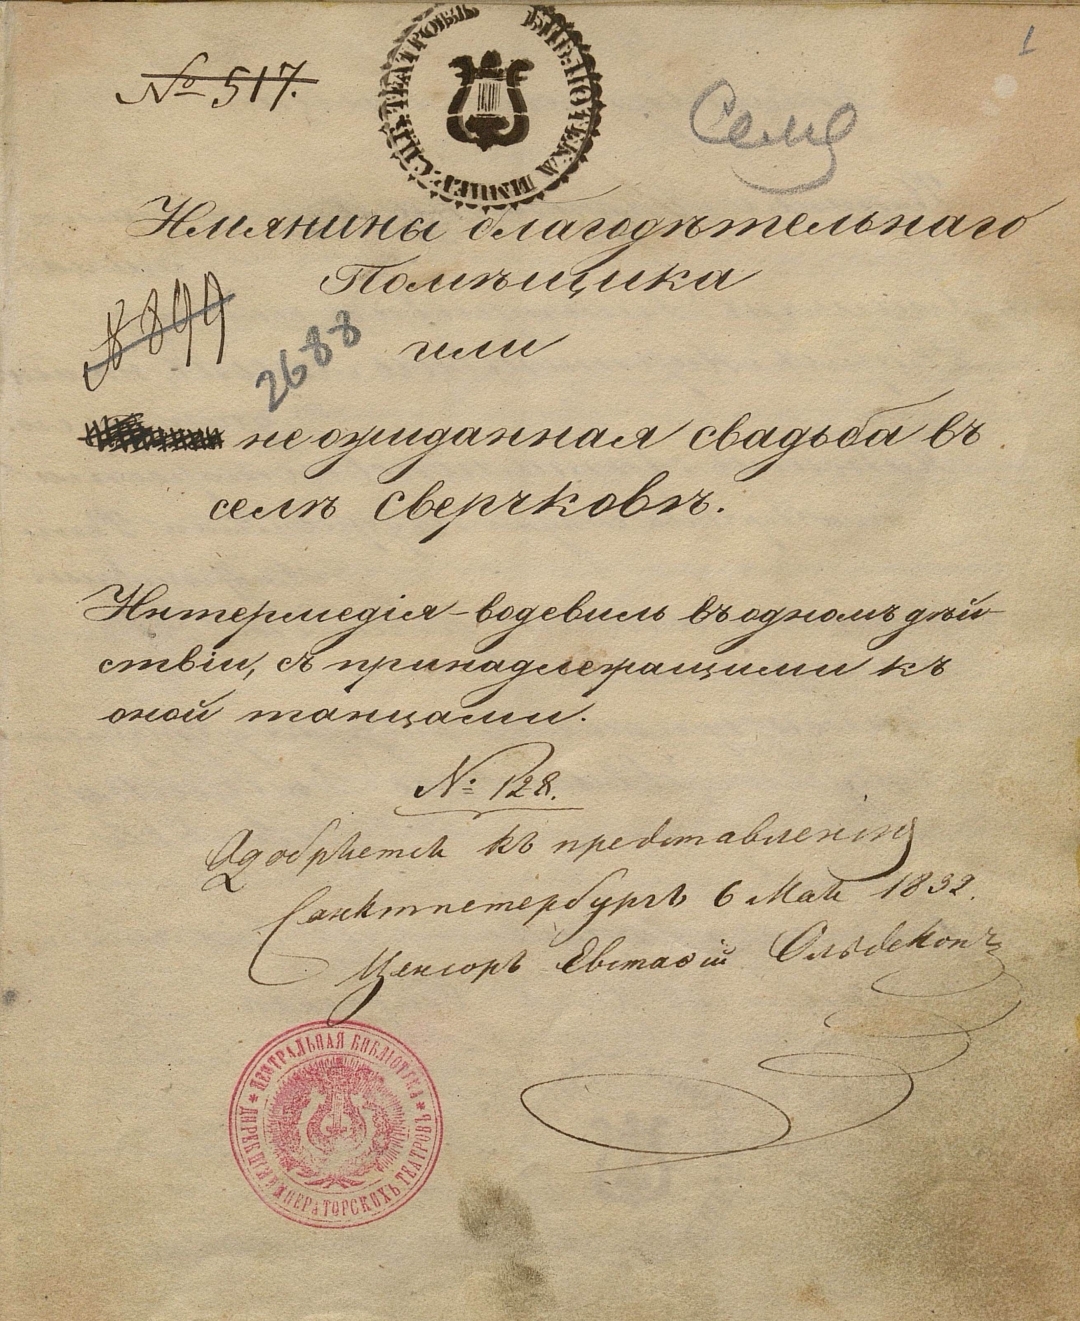 1
№ 517.
БИБЛIОТЕКА ИМПЕР. С.П.Б. ТЕАТРОВЪ
Имянины благодѣтельнаго
Помѣщика
№ 899
2688
или
неожиданная свадьба въ
селѣ Сверчковѣ.
Интермедія-водевиль въ одномъ дѣй
ствіи, съ принадлежащими къ
оной танцами.
№ 128.
Одобряется къ представленію
Санктпетербургъ 6 Мая 1832.
Ценсоръ Евстафій Ольдекопъ
ЦЕНТРАЛЬНАЯ БИБЛІОТЕКА
ДИРЕКЦІИ ИМПЕРАТОРСКИХЪ ТЕАТРОВЪ